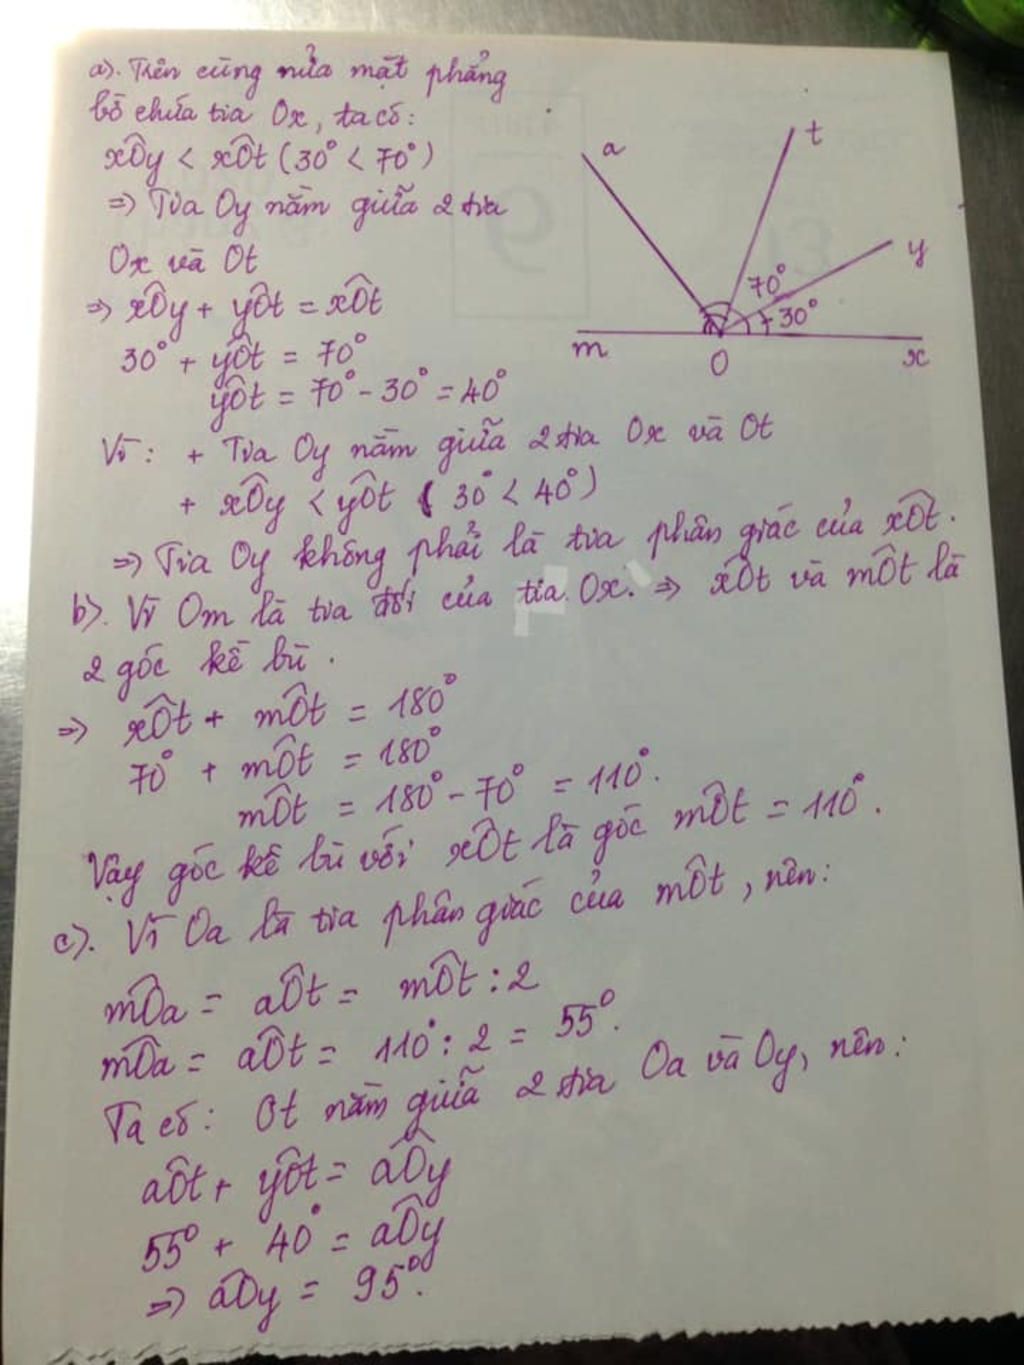 a). Trên cùng nửa mặt phẳng
bờ chứa tia Ox, ta có:
xÔy < xÔt (30° < 70°)
=> Tia Oy nằm giữa 2 tia
Ox và Ot
=> xÔy + yÔt = xÔt
30° + yÔt = 70°
yÔt = 70° - 30° = 40°
Vì: + Tia Oy nằm giữa 2 tia Ox và Ot
+ xÔy < yÔt (30° < 40°)
=> Tia Oy không phải là tia phân giác của xÔt.
b). Vì Om là tia đối của tia Ox. => xÔt và mÔt là
2 góc kề bù.
=> xÔt + mÔt = 180°
70° + mÔt = 180°
mÔt = 180° - 70° = 110°.
Vậy góc kề bù với xÔt là góc mÔt = 110°.
c). Vì Oa là tia phân giác của mÔt, nên:
mÔa = aÔt = mÔt : 2
mÔa = aÔt = 110° : 2 = 55°.
Ta có: Ot nằm giữa 2 tia Oa và Oy, nên:
aÔt + yÔt = aÔy
55° + 40° = aÔy
=> aÔy = 95°.
a
t
y
70°
30°
m
O
x